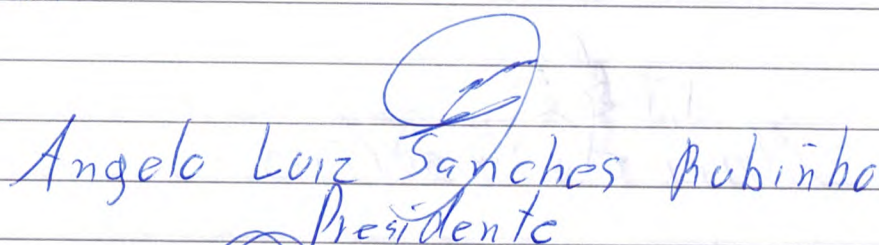 Angelo Luiz Sanches Rubinho
Presidente